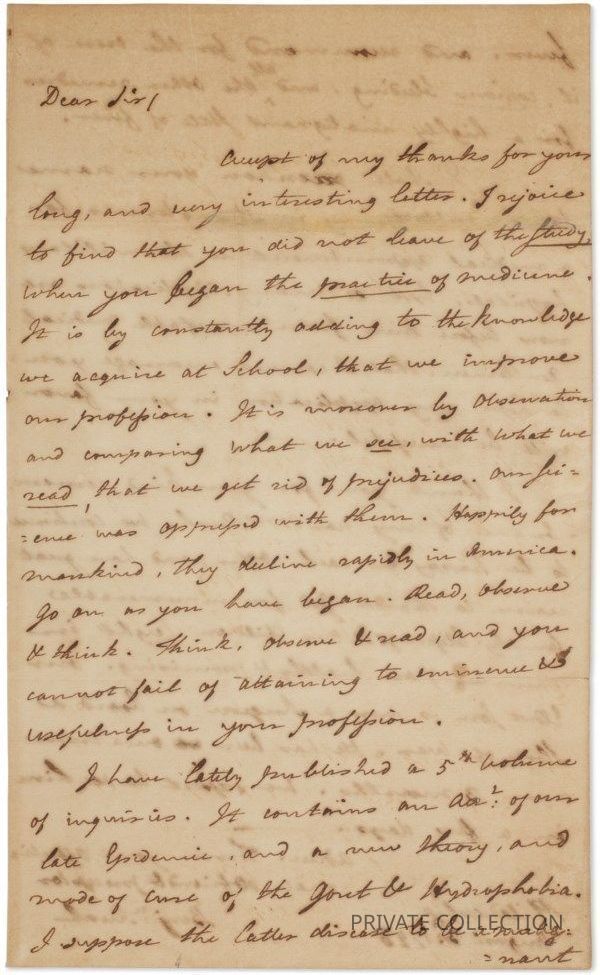 Dear Sir/
Accept of my thanks for your
long, and very interesting letter. I rejoice
to find that you did not leave of the study,
when you began the practice of medicine.
It is by constantly adding to the knowledge
we acquire at School, that we improve
our profession. It is moreover by Observation
and comparing what we see, with what we
read, that we get rid of prejudices. Our Sci=
=ence was oppressed with them. Happily for
mankind, they decline rapidly in America.
Go on as you have began. Read, observe
& think. Think, observe & read, and you
cannot fail of attaining to eminence &
usefulness in your profession.
I have lately published a 5th Volume
of inquiries. It contains an Acct: of our
late Epidemic, and a new theory, and
mode of cure of the Gout & Hydrophobia.
I suppose the latter disease to be a malig:
=nant
PRIVATE COLLECTION